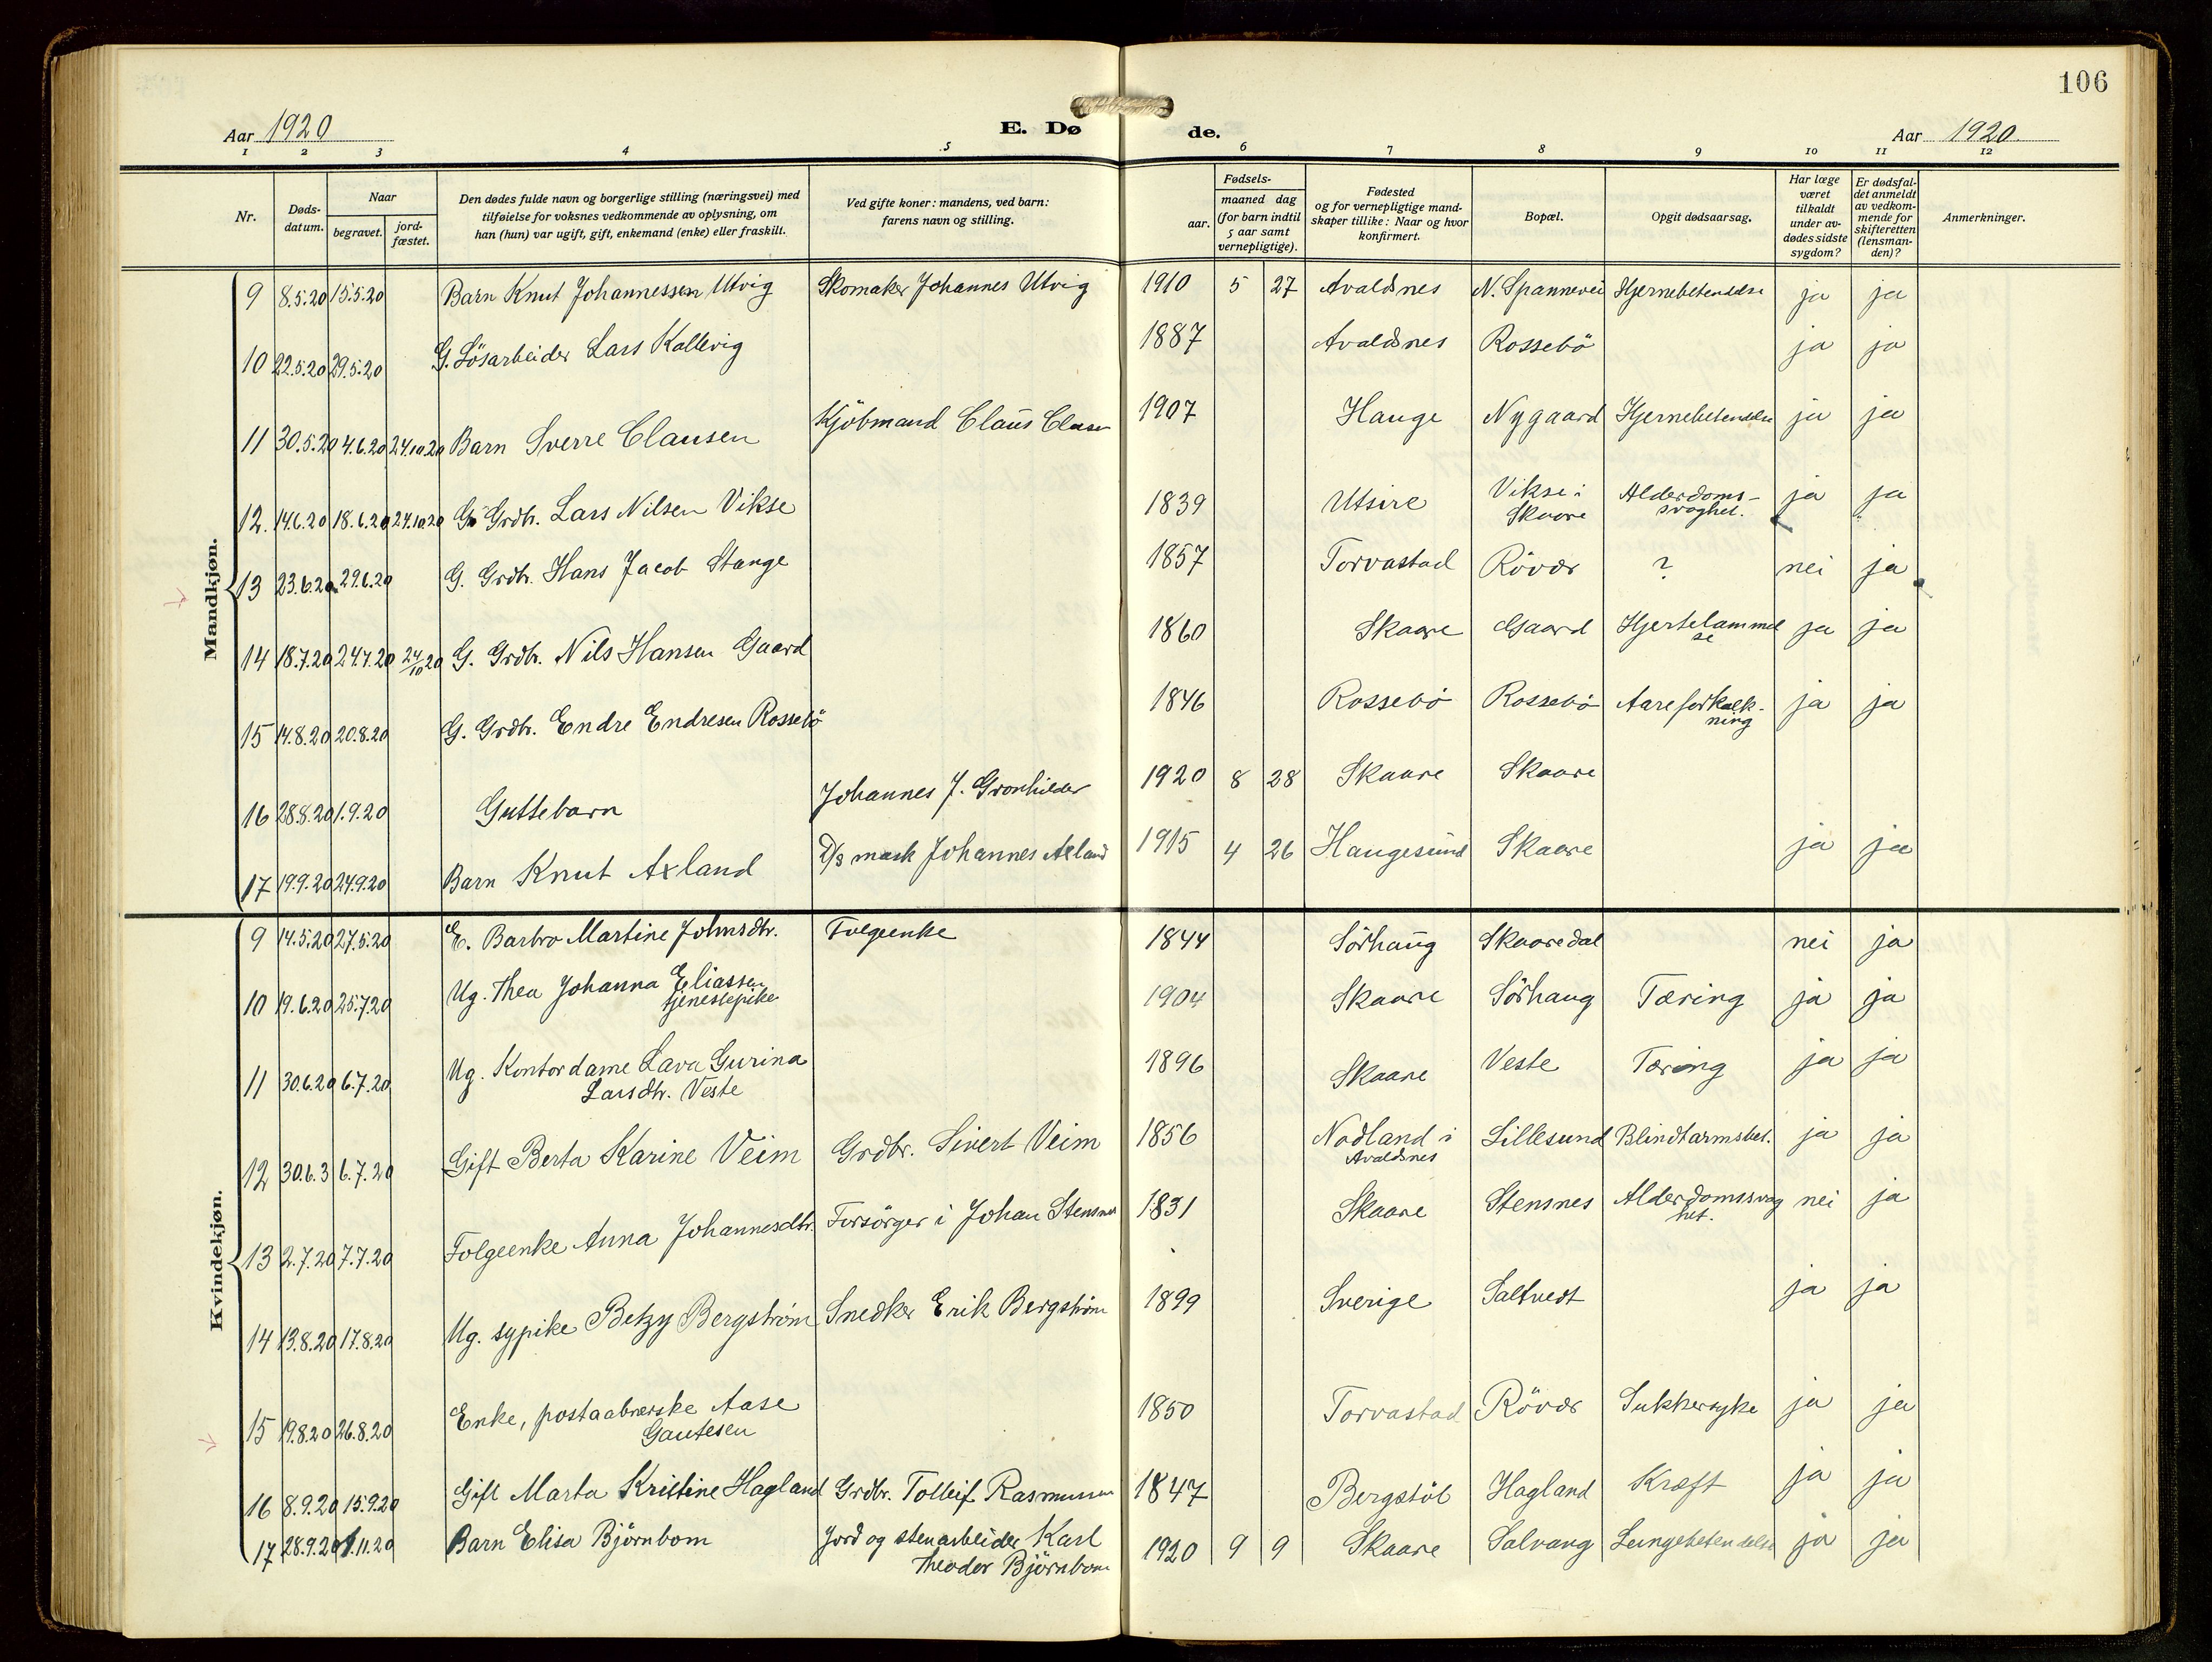 106
Aar 1920
E. Døde.
Aar 1920.
1 2 3 4 5 6 7 8 9 10 11 12
Nr.
Døds-datum.
Naar
begravet.
jord-fæstet.
Den dødes fulde navn og borgerlige stilling (næringsvei) med
tilføielse for voksnes vedkommende av oplysning, om
han (hun) var ugift, gift, enkemand (enke) eller fraskilt.
Ved gifte koner: mandens, ved barn:
farens navn og stilling.
Fødsels-
aar.
maaned dag
(for barn indtil
5 aar samt
vernepligtige).
Fødested
og for vernepligtige mand-
skaper tillike: Naar og hvor
konfirmert.
Bopæl.
Opgit dødsaarsag.
Har læge
været
tilkaldt
under av-
dødes sidste
sygdom?
Er dødsfal-
det anmeldt
av vedkom-
mende for
skifteretten
(lensman-
den)?
Anmerkninger.
Mandkjøn.
9 8.5.20 15.5.20 Barn Knut Johannessen Utvig Skomaker Johannes Utvig 1910 5 27 Avaldsnes N. Spannevei Hjernebetendelse ja ja
10 22.5.20 29.5.20 G. Lösarbeider Lars Kallevig 1887 Avaldsnes Rossebö ja ja
11 30.5.20 4.6.20 24.10.20 Barn Sverre Clausen Kjöbmand Claus Clausen 1907 Hauge Nygaard Hjernebetendelse ja ja
12. 14.6.20 18.6.20 24.10.20 G. Grdbr. Lars Nilsen Vikse 1839 Utsire Vikse i Skaare Alderdoms-svaghet. ja ja
13 23.6.20 29.6.20 G. Grdbr. Hans Jacob Stange 1857 Torvastad Rövær ? nei ja
14 18.7.20 24.7.20 24/10 20 G. Grdbr. Nils Hansen Gaard 1860 Skaare Gaard Hjertelammelse ja ja
15 14.8.20 20.8.20 G. Grdbr. Endre Endresen Rossebö 1846 Rossebö Rossebö Aareforkalk-ning ja ja
16 28.8.20 1.9.20 Guttebarn Johannes J. 1920 8 28 Skaare Skaare
17 19.9.20 24.9.20 Barn Knut Axland D/s mask Johannes Axland 1915 4 26 Haugesund Skaare ja ja
Kvindekjøn.
9 14.5.20 27.5.20 E. Barbro Martine Johnsdtr. Folgeenke 1844 Sörhaug Skaaredal nei ja
10 19.6.20 25.7.20 Ug. Thea Johanna Eliassen tjenestepike 1904 Skaare Sörhaug Tæring ja ja
11 30.6.20 6.7.20 Ug. Kontordame Lava Gurina Larsdtr. Veste 1896 Skaare Veste Tæring ja ja
12 30.6.3 6.7.20 Gift Berta Karine Veim Grdbr. Sivert Veim 1856 Nodland i Avaldsnes Lillesund Blindtarmsbet. ja ja
13 2.7.20 7.7.20 Folgeenke Anna Johannesdtr. Forsörger i Johan Stensnes 1831 Skaare Stensnes Alderdomssvaghet. nei ja
14 13.8.20 17.8.20 Ug. sypike Betzy Bergström Snedker Erik Bergström 1899 Sverige Saltvedt ja ja
15 19.8.20 26.8.20 Enke, postaabnerske Aase Gautesen 1850 Torvastad Rövær Sukkersyke ja ja
16 8.9.20 15.9.20 Gift Marta Kristine Hagland Grdbr. Tolleif Rasmussen 1847 Bergstöl Hagland Kræft ja ja
17 28.9.20 1.11.20 Barn Elisa Björnbom Jord og stenarbeider Karl Theodor Björnbom 1920 9 9 Skaare Salvang Lungebetendelse ja ja